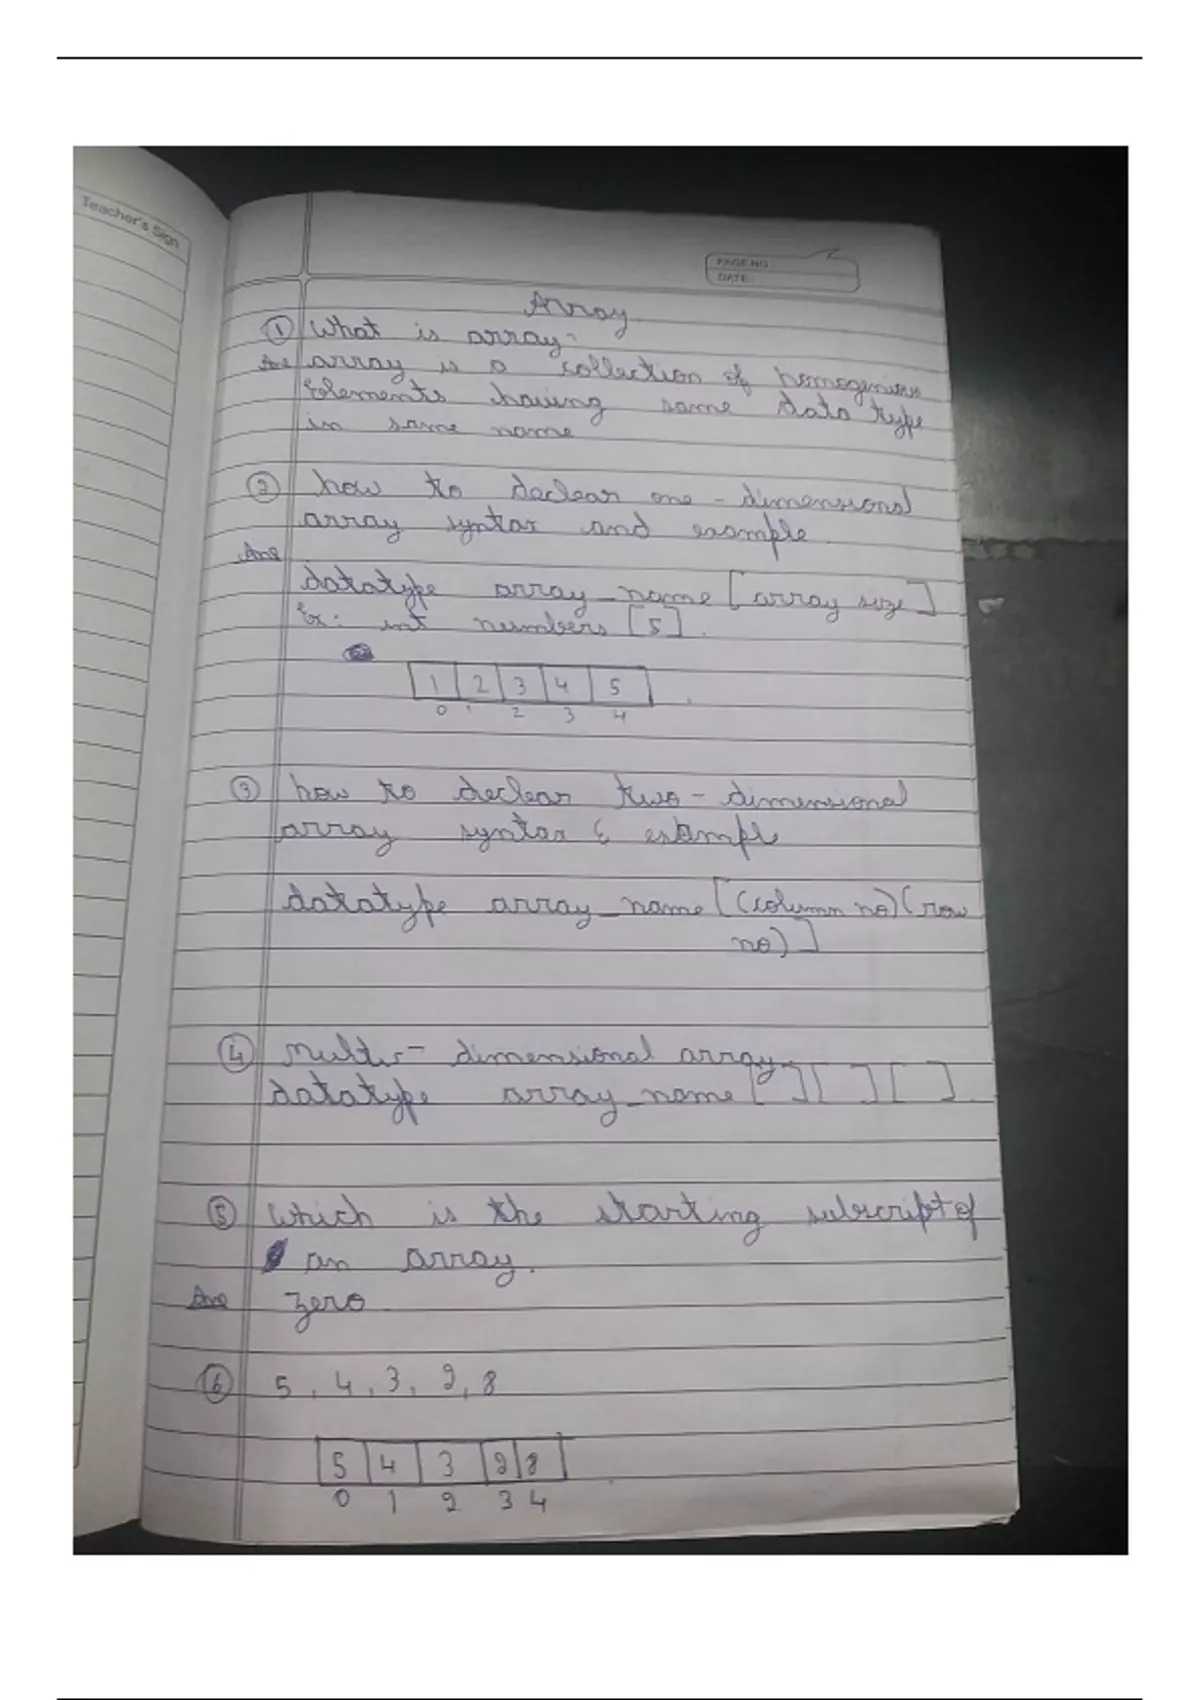 Teacher's Sign
PAGE NO
DATE:
Array
① What is array-
Ans array is a collection of homogenious
Elements having same data type
in same name
② how to declear one-dimensional
array syntax and example.
Ans
datatype array_name [array size]
Ex: int numbers [5].
1 2 3 4 5
0 1 2 3 4
③ how to declear two-dimensional
array syntax & example
datatype array_name [(column no)(row
no)]
④ Multi-dimensional array.
datatype array_name [ ] [ ] [ ].
⑤ Which is the starting subscript of
an array.
Ans zero.
⑥ 5, 4, 3, 2, 8
5 4 3 2 8
0 1 2 3 4